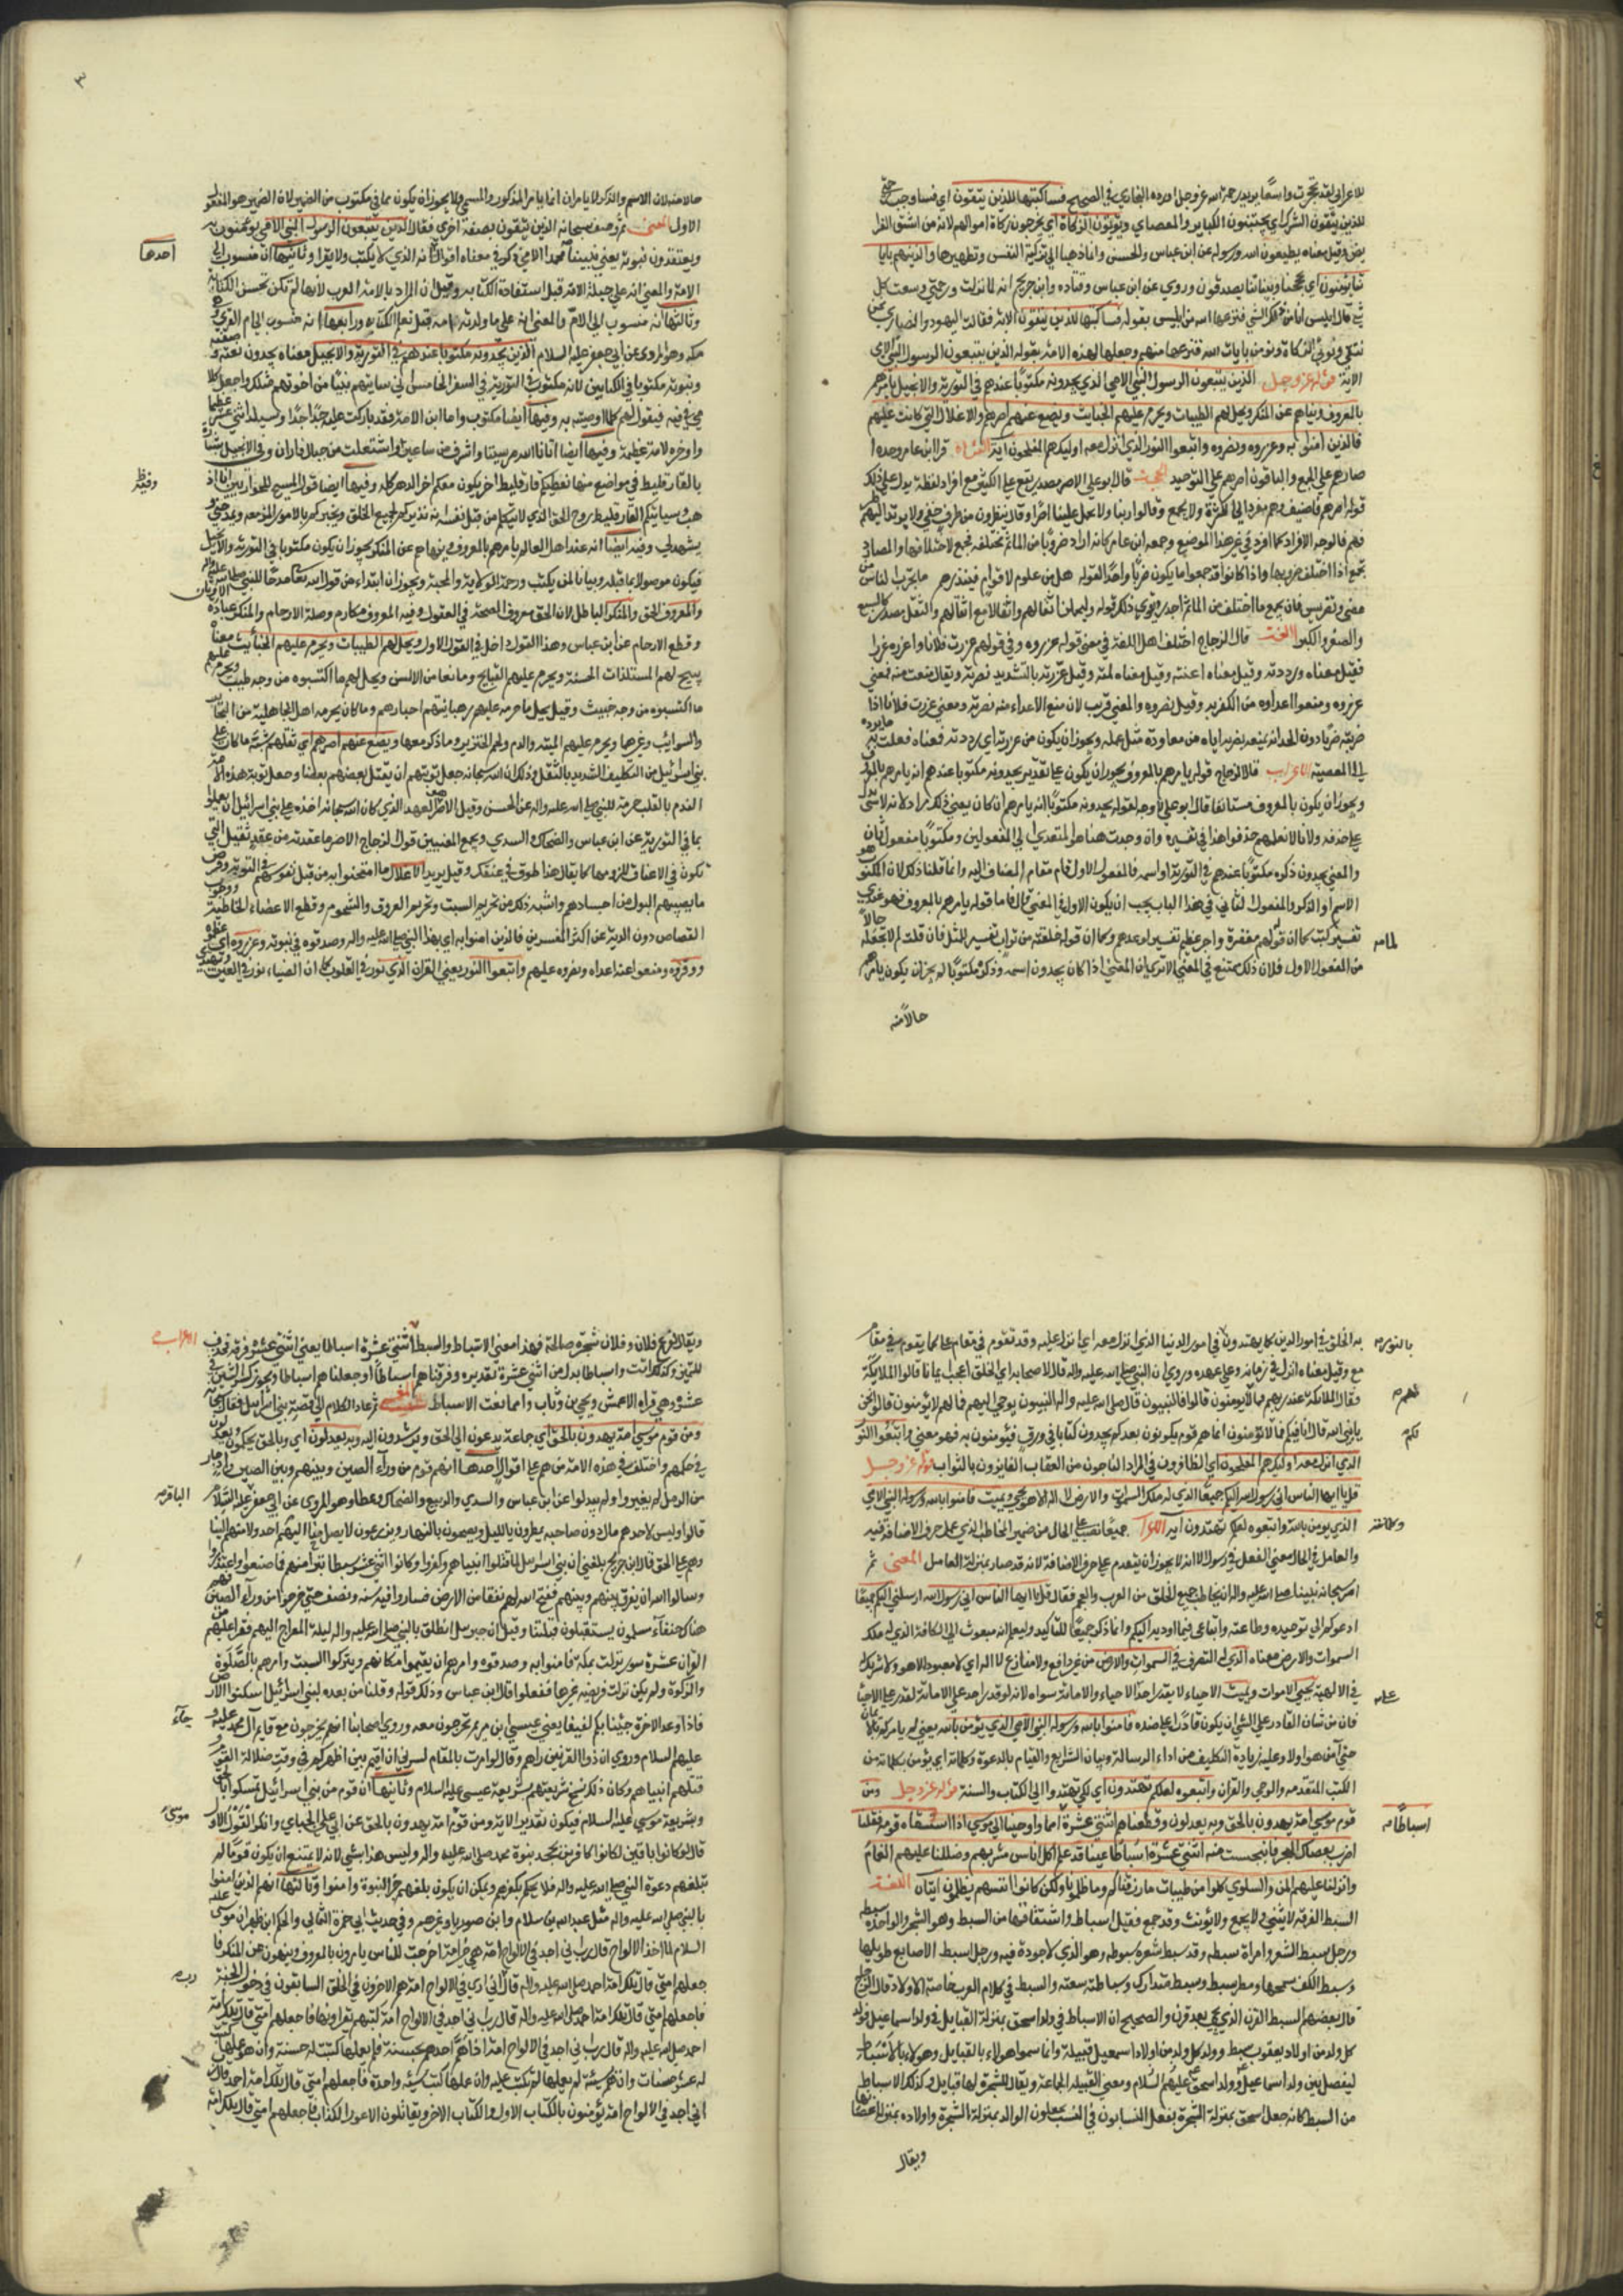 للاعرابي لقد تحجرت واسعا يريد رحمة الله عز وجل اورده البخاري في الصحيح فسأكتبها للذين يتقون اي فساوجب رحمتي
للذين يتقون الشرك اي يجتنبون الكباير والمعاصي ويؤتون الزكاة اي يخرجون زكاة اموالهم لانه من اشق الفرا
يض وقيل معناه يطيعون الله ورسوله عن ابن عباس والحسن وانما ذهبا الى تزكية النفس وتطهيرها والذين هم بايا
تنا يؤمنون اي بحججنا وبيناتنا يصدقون وروي عن ابن عباس وقتاده وابن جريج انه لما نزلت ورحمتي وسعت كل
شي قال ابليس انا من ذلك الشي فنزعها الله من ابليس بقوله فسأكتبها للذين يتقون الاية فقالت اليهود والنصارى نحن
نتقي ونؤتي الزكاة ونؤمن بايات الله فنزعها منهم وجعلها لهذه الامة بقوله الذين يتبعون الرسول النبي الامي
الاية قوله عز وجل الذين يتبعون الرسول النبي الامي الذي يجدونه مكتوبا عندهم في التورية والانجيل يامرهم
بالمعروف وينهاهم عن المنكر ويحل لهم الطيبات ويحرم عليهم الخبايث ويضع عنهم اصرهم والاغلال التي كانت عليهم
فالذين امنوا به وعزروه ونصروه واتبعوا النور الذي انزل معه اوليك هم المفلحون اية القراءة قرا ابن عامر وحده ا
صارهم على الجمع والباقون اصرهم على التوحيد الحجة قال ابو علي الاصر مصدر يقع على الكثير مع افراد لفظه يدل على ذلك
قوله اصرهم فاضيف وهو مفرد الى الكثرة ولا يجمع وقالوا ربنا ولا تحمل علينا اصرا وقال ينظرون من طرف خفي ولا يرتد اليهم طر
فهم فالوجه الافراد كما افرد في غير هذا الموضع وجمعه ابن عامر كانه اراد ضروبا من الماثم مختلفة فجمع لاختلافها والمصادر
تجمع اذا اختلف ضروبها واذا كانوا قد جمعوا ما يكون ضربا واحدا لقوله هل من علوم لاقوام فينذرهم ما جرب الناس من
عضي وتضريسي فان يجمع ما اختلف من الماثم اجدر ويقوي ذلك قوله وليحملن اثقالهم واثقالا مع اثقالهم والثقل مصدر كالشبع
والصغر والكبر اللغة قال الزجاج اختلف اهل اللغة في معنى قوله عزروه وفي قولهم عزرت فلانا واعزره عزرا
فقيل معناه ورددته وقيل معناه اعنته وقيل معناه لمته وقيل عزرته بالتشديد نصرته ويقال منعت منه فمعنى
عزروه ومنعوا اعداوه من الكفر به وقيل نصروه والمعنى قريب لان منع الاعداء منه نصرته ومعنى عزرت فلانا اذا
ضربته ضربا دون الحد انه يمنعه بضربه اياه من معاودة مثل عمله ويجوز ان يكون من عزرته اي رددته فمعناه فعلت به ما يرده
الى المعصية الاعراب قال الزجاج قوله يامرهم بالمعروف يجوز ان يكون على تقدير يجدونه مكتوبا عندهم انه يامرهم بالمعروف
ويجوز ان يكون بالمعروف مستانفا قال ابو علي لا وجه لقوله يجدونه مكتوبا انه يامرهم ان كان يعني ذلك مرادا لانه لا شي يدل
على حذفه ولانا لا نعلمهم حذفوا هذا في نفسيره وان وجدت هنا هو المتعدي الى المفعولين ومكتوبا مفعول ثان
والمعنى يجدون ذكره مكتوبا عندهم في التورية او اسمه فالمفعول الاول قام مقام المضاف اليه وانما قلنا ذلك لان المكتوب هو
الاسم او الذكر والمفعول الثاني في هذا الباب يجب ان يكون الاول في المعنى قال فاما قوله يامرهم بالمعروف فهو عندي
تفسير لما كتب كما ان قوله لهم مغفرة واجر عظيم تفسير لوعدهم وكما ان قوله خلقه من تراب تفسير للمثل فان قلت لم لا تجعله حالا
من المفعول الاول فلان ذلك يمتنع في المعنى الا ترى ان المعنى اذا كان يجدون اسمه وذكره مكتوبا لم يجز ان يكون يامرهم
حالا منه
٣
حالا منه لان الاسم والذكر لا يامران انما يامر المذكور والمسمى ولا يجوز ان يكون مما في مكتوب من الضمير لان الضمير هو المفعول
الاول المعنى ثم وصف سبحانه الذين يتقون بصفة اخرى فقال الذين يتبعون الرسول النبي الامي اي يؤمنون به
ويعتقدون نبوته يعني نبينا محمدا الامي ذكر في معناه اقوال احدها انه الذي لا يكتب ولا يقرا وثانيها انه منسوب الى
الامة والمعنى انه على جبلة الامة قبل استفادة الكتابة وقيل ان المراد بالامة العرب لانها لم تكن تحسن الكتابة
وثالثها انه منسوب الى الام والمعنى انه على ما ولدته امه قبل تعلم الكتابة ورابعها انه منسوب الى ام القرى وهو
مكه وهو المروي عن ابي جعفر عليه السلام الذي يجدونه مكتوبا عندهم في التورية والانجيل معناه يجدون نعته وصفته
ونبوته مكتوبا في الكتابين لانه مكتوب في التورية في السفر الخامس اني ساقيم لهم نبيا من اخوتهم مثلك واجعل كلا
مي في فيه فيقول لهم كلما اوصيته به وفيها ايضا مكتوب واما ابن الامة فقد باركت عليه جدا جدا وسيلد اثني عشر عظيما
واوخره لامة عظيمة وفيها ايضا اتانا الله من سينا واشرق من ساعير واستعلن من جبال فاران وفي الانجيل بشارة
بالفارقليط في مواضع منها نعطيكم فارقليط اخر يكون معكم اخر الدهر كله وفيها ايضا قول المسيح للحواريين انا اذ
هب وسياتيكم الفارقليط روح الحق الذي لا يتكلم من قبل نفسه انه نذيركم بجميع الخلق ويخبركم بالامور المزمعه ويمدحني و
يشهد لي وفيه ايضا انه عند اهل العالم يامرهم بالمعروف وينهاهم عن المنكر يجوز ان يكون مكتوبا في التورية والانجيل
فيكون موصولا بما قبله وبيانا لمن يكتب ورحمة الولاية والمحبة ويجوز ان ابتداء من قول الله تعالى مدحا للنبي صلى الله عليه واله
والمعروف الحق والمنكر الباطل لان الحق معروف الصحة في العقول وفيه المعروف مكارم وصلة الارحام والمنكر عبادة الاوثان
وقطع الارحام عن ابن عباس وهذا القول داخل في القول الاول ويحل لهم الطيبات ويحرم عليهم الخبائث معناه
يبيح لهم المستلذات الحسنة ويحرم عليهم القبايح وما تعافه الانفس ويحل لهم ما اكتسبوه من وجه طيب ويحرم عليهم
ما اكتسبوه من وجه خبيث وقيل يحل ما حرمه عليهم رهبانيتهم احبارهم وما كان يحرمه اهل الجاهلية من البحاير
والسوائب وغيرها ويحرم عليهم الميتة والدم ولحم الخنزير وما ذكر معها ويضع عنهم اصرهم اي ثقلهم شبه ما كان على
بني اسرائيل من التكليف الشديد بالثقل وذلك ان الله سبحانه جعل توبتهم ان يقتل بعضهم بعضا وجعل توبة هذه الامة
الندم بالقلب حرمة للنبي صلى الله عليه واله عن الحسن وقيل الاصر هو العهد الذي كان الله سبحانه اخذه على بني اسرائيل ان يعملوا
بما في التورية عن ابن عباس والضحاك والسدي ويجمع المعنيين قول الزجاج الاصر ما عقدته من عقد ثقيل التي
تكون في الاعناق للزومها كما يقال هذا طوق في عنقك وقيل يريد بالاغلال ما امتحنوا به من قبل نفوسهم في التورية وقرض
ما يصيبهم البول من اجسادهم واشبه ذلك من تحريم السبت وتحريم العروق والشحوم وقطع الاعضاء الخاطية ووجوب
القصاص دون الدية عن اكثر المفسرين فالذين امنوا به اي بهذا النبي صلى الله عليه واله وصدقوه في نبوته وعزروه اي عظموه
ووقروه ومنعوا عنه اعداه ونصروه عليهم واتبعوا النور يعني القران الذي نور في القلوب كما ان الضياء نور في العين
احدها
بالتوريه
به الخلق في امور الدين كما يهتدون في امور الدنيا الذي انزل معه اي انزل عليه وقد تقوم في مقام على كما يقوم في مقام
مع وقيل معناه انزل في زمانه وعلى عهده وروي ان النبي صلى الله عليه واله قال لاصحابه اي الخلق اعجب ايمانا قالوا الملايكة
فقال الملائكة عند ربهم فما لهم لا يؤمنون قالوا فالنبيون قال صلى الله عليه واله النبيون يوحى اليهم فما لهم لا يؤمنون قالوا فنحن
يا نبي الله قال انا فيكم فما لكم لا تؤمنون انما هم قوم يكونون بعدكم يجدون كتابا في ورق فيؤمنون به فهو معنى واتبعوا النور
الذي انزل معه اوليك هم المفلحون اي الظافرون في المراد الناجون من العقاب الفايزون بالثواب قوله عز وجل
قل يا ايها الناس اني رسول الله اليكم جميعا الذي له ملك السموات والارض لا اله الا هو يحيي ويميت فامنوا بالله ورسوله النبي الامي
الذي يؤمن بالله واتبعوه لعلكم تهتدون اية الاعراب جميعا نصب على الحال من ضمير المخاطب الذي عمل حرف الاضافة فيه
والعامل في الحال معنى الفعل في رسول الله لانه لا يجوز ان يتقدم على حرف الاضافة لانه قد صار بمنزلة العامل المعنى ثم
امر سبحانه نبينا صلى الله عليه واله ان يخاطب جميع الخلق من العرب والعجم فقال قل يا ايها الناس اني رسول الله ارسلني اليكم جميعا
ادعوكم الى توحيده وطاعته واتباعي فيما اوديه اليكم وانما ذكر جميعا للتاكيد وليعلم انه مبعوث الى الكافة الذي له ملك
السموات والارض معناه الذي له التصرف في السموات والارض من غير دافع ولا منازع لا اله اي لا معبود الا هو ولا شريك
في الالهية يحيي الاموات ويميت الاحياء لا يقدر احد على الاحياء والاماتة سواه لانه لو قدر احد على الاماتة لقدر على الاحيا
فان من شان القادر على الشي ان يكون قادرا على ضده فامنوا بالله ورسوله النبي الامي الذي يؤمن بالله يعني لم يامركم بالايمان
حتى آمن هو اولا وعليه زيادة التكليف من اداء الرسالة وبيان الشرايع والقيام بالدعوة وكلماته اي يؤمن بكلماته من
الكتب المتقدمة والوحي والقران واتبعوه لعلكم تهتدون اي لكي تهتدوا الى الكتاب والسنة قوله عز وجل ومن
قوم موسى امة يهدون بالحق وبه يعدلون وقطعناهم اثنتي عشرة امما واوحينا الى موسى اذا استسقاه قومه فقلنا
اضرب بعصاك الحجر فانبجست منه اثنتي عشرة اسباطا عينا قد علم كل اناس مشربهم وضللنا عليهم الغمام
وانزلنا عليهم المن والسلوى كلوا من طيبات ما رزقناكم وما ظلمونا ولكن كانوا انفسهم يظلمون ايتان اللغة
السبط الفرقة لا يثنى ولا يجمع ولا يؤنث وقد جمع فقيل اسباط واشتقاقها من السبط وهو الشجر والواحدة سبطه
ورجل سبط الشعر وامراة سبطه وقد سبط شعره سبوطه وهو الذي لا جعودة فيه ورجل سبط الاصابع طويلها
وسبط الكف سمحها ومطر سبط وسبط متدارك وسباطته سعته والسبط في كلام العرب خاصة الاولاد قال الزجاج
قال بعضهم السبط القرن الذي يجي بعد قرن والصحيح ان الاسباط في ولد اسحق بمنزلة القبايل في ولد اسماعيل فولد
كل ولد من اولاد يعقوب سبط وولد كل ولد من اولاد اسمعيل قبيلة وانما سموا هولاء بالقبايل وهولاء بالاسباط
ليفصل بين ولد اسماعيل وولد اسحق عليهم السلام ومعنى القبيلة الجماعة ويقال للشجرة لها قبايل وكذلك الاسباط
من السبط كانه جعل اسحق بمنزلة الشجرة يفعل النسابون في النسب يجعلون الوالد بمنزلة الشجرة واولاده بمنزلة اغصانها
ويقال
اسباطا
ويقال لفرع فلان وفلان شجره صالحة فهذا معنى الاسباط والسبط اثنتي عشرة اسباطا يعني اثنتي عشرة فرقة فحذف
للتميز وكذلك انث واسباطا بدل من اثنتي عشرة تقديره وفرقناهم اسباطا او جعلناهم اسباطا ويجوز كسر الشين في
عشرة وهي قراءة الاعمش ويحيى بن وثاب وانما انث الاسباط المعنى ثم عاد الكلام الى قصة بني اسرائيل فقال سبحانه
ومن قوم موسى امة يهدون بالحق اي جماعة يدعون الى الحق ويرشدون اليه وبه يعدلون اي وبالحق يحكمون ويعدلون
في حكمهم واختلف في هذه الامة من هم على اقوال احدها انهم قوم من وراء الصين وبينهم وبين الصين واد جار
من الرمل لم يغيروا ولم يبدلوا عن ابن عباس والسدي والربيع والضحاك وعطا وهو المروي عن ابي جعفر عليه السلام
قالوا وليس لاحدهم مال دون صاحبه يمطرون بالليل ويصحون بالنهار ويزرعون لا يصل منا اليهم احد ولا منهم الينا
وهم على الحق قال ابن جريج بلغني ان بني اسراييل لما قتلوا انبياهم وكفروا وكانوا اثني عشر سبطا تبرا منهم فما صنعوا واعتذروا
وسالوا الله ان يفرق بينهم وبينهم ففتح الله لهم نفقا من الارض فساروا فيه سنة ونصف حتى خرجوا من وراء الصين فهم
هناك حنفاء مسلمون يستقبلون قبلتنا وقيل ان جبريل انطلق بالنبي صلى الله عليه واله ليلة المعراج اليهم فقرا عليهم من
القران عشرة سور نزلت بمكة فامنوا به وصدقوه وامرهم ان يقيموا مكانهم ويتركوا السبت وامرهم بالصلوة
والزكوة ولم يكن نزلت فريضة غيرها ففعلوا قال ابن عباس وذلك قوله وقلنا من بعده لبني اسرائيل اسكنوا الارض
فاذا وعد الاخرة جئنا بكم لفيفا يعني عيسى ابن مريم تخرجون معه وروي اصحابنا انهم يخرجون مع قايم آل محمد عليه و
عليهم السلام وروي ان ذو القرنين راهم وقال لو امرت بالمقام لسرني ان اقيم بين اظهركم وفي وقت ضلالة القوم و
قتلهم انبياهم وكان ذلك نسخ شريعتهم بشريعة عيسى عليه السلام وثانيها ان قوم من بني اسرائيل تمسكوا بالحق
وبشريعة موسى عليه السلام فيكون تقدير الاية ومن قوم موسى امة يهدون بالحق عن ابي علي الجباي وانكر القول الاول
قال لو كانوا باقين لكانوا كافرين بجحد بنبوة محمد صلى الله عليه واله وليس هذا بشي لانه لا يمتنع ان يكون قوما لم
تبلغهم دعوة النبي صلى الله عليه واله فلا يحكم بكفرهم ويمكن ان يكون بلغهم خبر النبوة وامنوا وثالثها انهم الذين امنوا
بالنبي صلى الله عليه واله مثل عبد الله بن سلام وابن صوريا وغيرهم وفي حديث ابي حمزة الثمالي والحكم ابن ظهير ان موسى عليه
السلام لما اخذ الالواح قال رب اني اجد في الالواح امة هي خير امة اخرجت للناس يامرون بالمعروف وينهون عن المنكر فا
جعلهم امتي قال تلك امة احمد صلى الله عليه واله قال اني ارى في الالواح امة هم الاخرون في الخلق السابقون في دخول الجنة
فاجعلهم امتي قال تلك امة احمد صلى الله عليه واله قال رب اني اجد في الالواح امة كتبهم يقراونها فاجعلهم امتي قال تلك امة
احمد صلى الله عليه واله قال رب اني اجد في الالواح امة اذا هم احدهم بحسنة فلم يعملها كتبت له حسنة وان عملها
له عشر حسنات وان هم بسيئة لم يعملها لم تكتب عليه وان عملها كتبت سيئة واحدة فاجعلهم امتي قال تلك امة احمد قال رب
اني اجد في الالواح امة يؤمنون بالكتاب الاول والكتاب الاخر ويقاتلون الاعور الكذاب فاجعلهم امتي قال تلك امة
الاعراب
الباقر
جآء
موسى